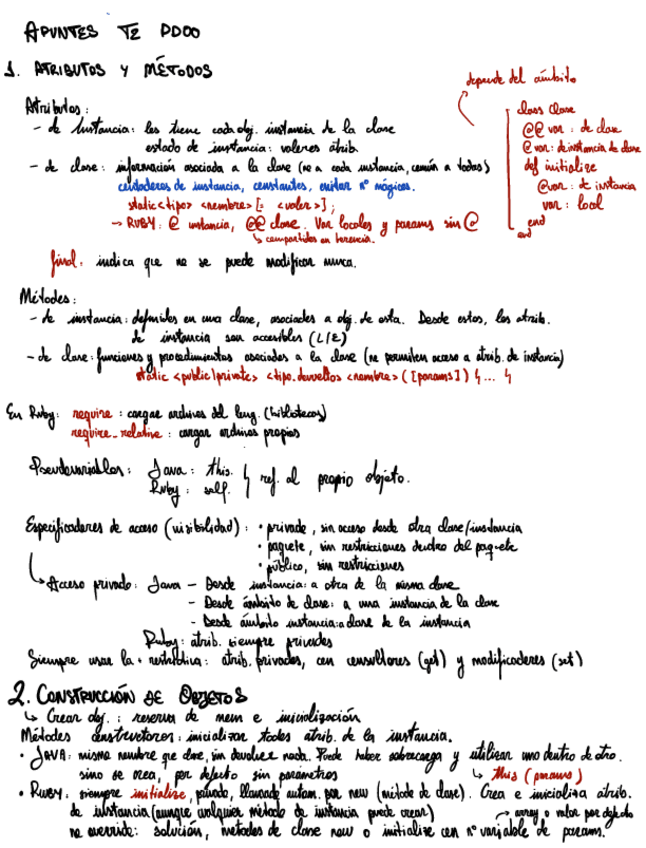 APUNTES T2 PDOO
1. ATRIBUTOS Y MÉTODOS
depende del ámbito
Atributos:
- de instancia: los tiene cada obj. instancia de la clase
estado de instancia: valores atrib.
- de clase: información asociada a la clase (no a cada instancia, común a todas)
contadores de instancia, constantes, evitar nº mágicos.
static <tipo> <nombre> [= <valor>];
→ RUBY: @ instancia, @@ clase. Var locales y params sin @
↳ compartidos en herencia.
class Clase
@@ var : de clase
@ var : de instancia de clase
def initialize
@var : de instancia
var : local
end
end
final: indica que no se puede modificar nunca.
Métodos:
- de instancia: definidos en una clase, asociados a obj. de esta. Desde estos, los atrib.
de instancia son accesibles (L/E)
- de clase: funciones y procedimientos asociados a la clase (no permiten acceso a atrib. de instancia)
static <public|private> <tipo.devuelto> <nombre> ([params]) { ... }
En Ruby: require : cargar archivos del leng. (bibliotecas)
require_relative : cargar archivos propios
Pseudovariables: Java: this.
Ruby: self. } ref. al propio objeto.
Especificadores de acceso (visibilidad): • privado, sin acceso desde otra clase/instancia
• paquete, sin restricciones dentro del paquete
• público, sin restricciones
↳ Acceso privado: Java - Desde instancia: a otra de la misma clase
- Desde ámbito de clase: a una instancia de la clase
- Desde ámbito instancia: a clase de la instancia
Ruby: atrib. siempre privados
Siempre usar la + restrictiva: atrib. privados, con consultores (get) y modificadores (set)
2. CONSTRUCCIÓN DE OBJETOS
↳ Crear obj. : reserva de mem e inicialización
Métodos constructores: inicializar todos atrib. de la instancia.
• JAVA: mismo nombre que clase, sin devolver nada. Puede haber sobrecarga y utilizar uno dentro de otro.
sino se crea, por defecto sin parámetros ↳ this (params)
• RUBY: siempre initialize, privado, llamado autom. por new (método de clase). Crea e inicializa atrib.
de instancia (aunque cualquier método de instancia puede crear) → array o valor por defecto
no override: solución, métodos de clase new o initialize con nº variable de params.